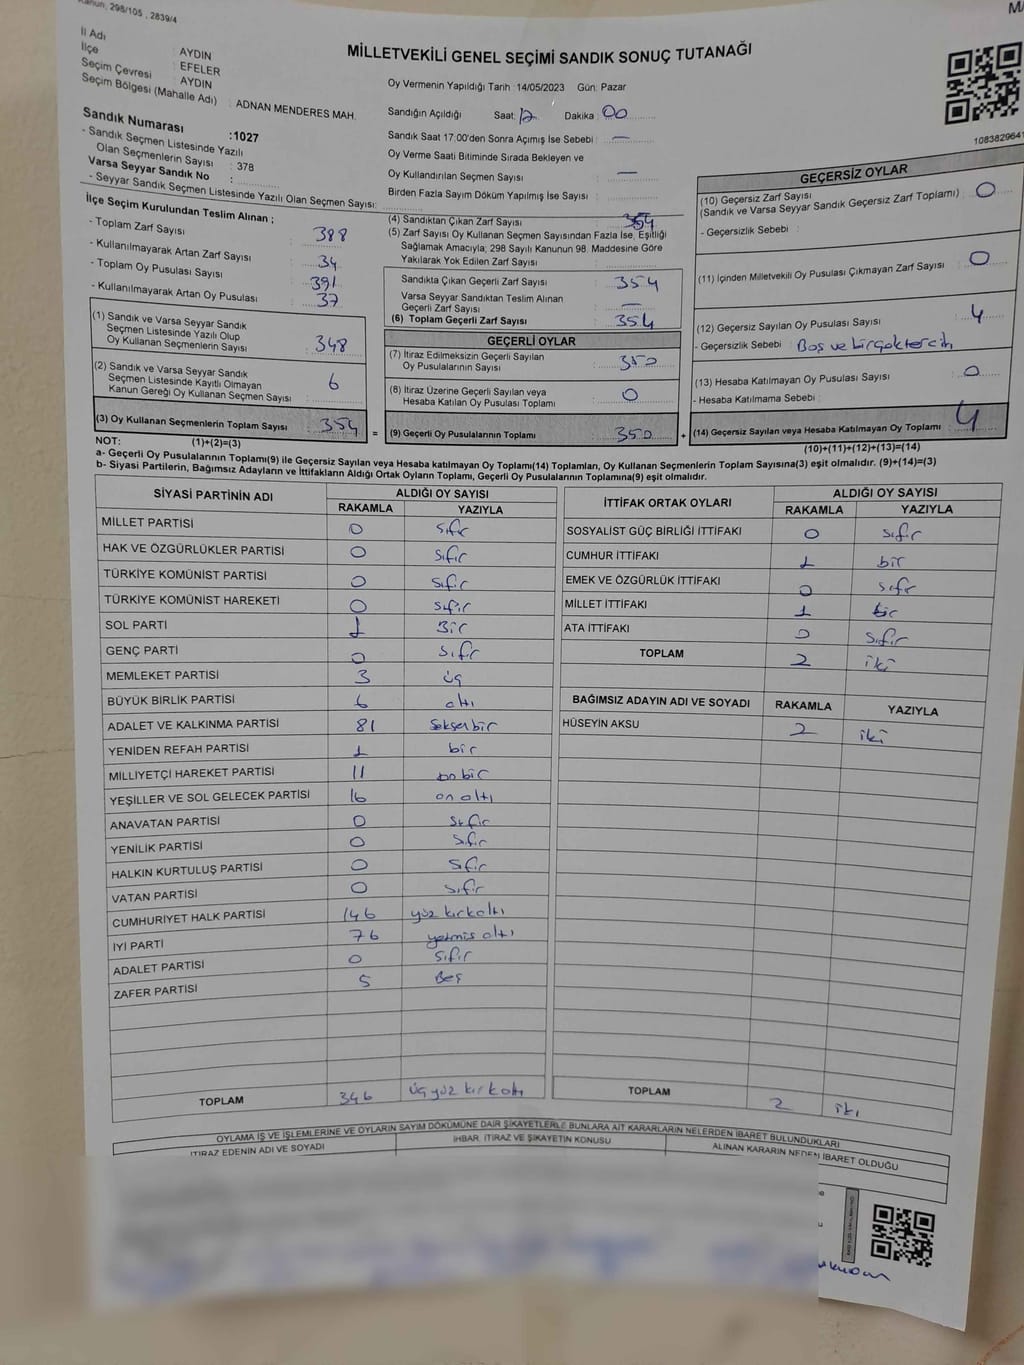 Kanun, 298/105 , 2839/4
İl Adı : AYDIN
İlçe : EFELER
Seçim Çevresi : AYDIN
Seçim Bölgesi (Mahalle Adı) : ADNAN MENDERES MAH.
Sandık Numarası :1027
- Sandık Seçmen Listesinde Yazılı
Olan Seçmenlerin Sayısı : 378
Varsa Seyyar Sandık No :
- Seyyar Sandık Seçmen Listesinde Yazılı Olan Seçmen Sayısı:
MİLLETVEKİLİ GENEL SEÇİMİ SANDIK SONUÇ TUTANAĞI
Oy Vermenin Yapıldığı Tarih : 14/05/2023 Gün: Pazar
Sandığın Açıldığı Saat: Dakika 00
Sandık Saat 17:00'den Sonra Açımış İse Sebebi : —
Oy Verme Saati Bitiminde Sırada Bekleyen ve
Oy Kullandırılan Seçmen Sayısı : —
Birden Fazla Sayım Döküm Yapılmış İse Sayısı :
1083829641
İlçe Seçim Kurulundan Teslim Alınan ;
- Toplam Zarf Sayısı : 388
- Kullanılmayarak Artan Zarf Sayısı : 34
- Toplam Oy Pusulası Sayısı : 391
- Kullanılmayarak Artan Oy Pusulası : 37
(1) Sandık ve Varsa Seyyar Sandık
Seçmen Listesinde Yazılı Olup
Oy Kullanan Seçmenlerin Sayısı : 348
(2) Sandık ve Varsa Seyyar Sandık
Seçmen Listesinde Kayıtlı Olmayan
Kanun Gereği Oy Kullanan Seçmen Sayısı : 6
(3) Oy Kullanan Seçmenlerin Toplam Sayısı : 354
(4) Sandıktan Çıkan Zarf Sayısı : 354
(5) Zarf Sayısı Oy Kullanan Seçmen Sayısından Fazla İse, Eşitliği
Sağlamak Amacıyla; 298 Sayılı Kanunun 98. Maddesine Göre
Yakılarak Yok Edilen Zarf Sayısı :
Sandıkta Çıkan Geçerli Zarf Sayısı : 354
Varsa Seyyar Sandıktan Teslim Alınan
Geçerli Zarf Sayısı : —
(6) Toplam Geçerli Zarf Sayısı : 354
GEÇERLİ OYLAR
(7) İtiraz Edilmeksizin Geçerli Sayılan
Oy Pusulalarının Sayısı : 350
(8) İtiraz Üzerine Geçerli Sayılan veya
Hesaba Katılan Oy Pusulası Toplamı : 0
= (9) Geçerli Oy Pusulalarının Toplamı : 350
GEÇERSİZ OYLAR
(10) Geçersiz Zarf Sayısı
(Sandık ve Varsa Seyyar Sandık Geçersiz Zarf Toplamı) : 0
- Geçersizlik Sebebi :
(11) İçinden Milletvekili Oy Pusulası Çıkmayan Zarf Sayısı : 0
(12) Geçersiz Sayılan Oy Pusulası Sayısı : 4
- Geçersizlik Sebebi : Boş ve birçok tercih
(13) Hesaba Katılmayan Oy Pusulası Sayısı : 0
- Hesaba Katılmama Sebebi :
+ (14) Geçersiz Sayılan veya Hesaba Katılmayan Oy Toplamı : 4
NOT: (1)+(2)=(3) (10)+(11)+(12)+(13)=(14)
a- Geçerli Oy Pusulalarının Toplamı(9) ile Geçersiz Sayılan veya Hesaba Katılmayan Oy Toplamı(14) Toplamları, Oy Kullanan Seçmenlerin Toplam Sayısına(3) eşit olmalıdır. (9)+(14)=(3)
b- Siyasi Partilerin, Bağımsız Adayların ve İttifakların Aldığı Ortak Oyların Toplamı, Geçerli Oy Pusulalarının Toplamına(9) eşit olmalıdır.
SİYASİ PARTİNİN ADI ALDIĞI OY SAYISI
RAKAMLA YAZIYLA
MİLLET PARTİSİ 0 sıfır
HAK VE ÖZGÜRLÜKLER PARTİSİ 0 sıfır
TÜRKİYE KOMÜNİST PARTİSİ 0 sıfır
TÜRKİYE KOMÜNİST HAREKETİ 0 sıfır
SOL PARTİ 1 Bir
GENÇ PARTİ 0 sıfır
MEMLEKET PARTİSİ 3 üç
BÜYÜK BİRLİK PARTİSİ 6 altı
ADALET VE KALKINMA PARTİSİ 81 seksenbir
YENİDEN REFAH PARTİSİ 1 bir
MİLLİYETÇİ HAREKET PARTİSİ 11 on bir
YEŞİLLER VE SOL GELECEK PARTİSİ 16 on altı
ANAVATAN PARTİSİ 0 sıfır
YENİLİK PARTİSİ 0 sıfır
HALKIN KURTULUŞ PARTİSİ 0 sıfır
VATAN PARTİSİ 0 sıfır
CUMHURİYET HALK PARTİSİ 146 yüz kırkaltı
İYİ PARTİ 76 yetmiş altı
ADALET PARTİSİ 0 sıfır
ZAFER PARTİSİ 5 Beş
TOPLAM 346 üçyüz kırkaltı
İTTİFAK ORTAK OYLARI ALDIĞI OY SAYISI
RAKAMLA YAZIYLA
SOSYALİST GÜÇ BİRLİĞİ İTTİFAKI 0 sıfır
CUMHUR İTTİFAKI 1 bir
EMEK VE ÖZGÜRLÜK İTTİFAKI 0 sıfır
MİLLET İTTİFAKI 1 bir
ATA İTTİFAKI 0 sıfır
TOPLAM 2 iki
BAĞIMSIZ ADAYIN ADI VE SOYADI RAKAMLA YAZIYLA
HÜSEYİN AKSU 2 iki
TOPLAM 2 iki
OYLAMA İŞ VE İŞLEMLERİNE VE OYLARIN SAYIM DÖKÜMÜNE DAİR ŞİKAYETLERLE BUNLARA AİT KARARLARIN NELERDEN İBARET BULUNDUKLARI
İTİRAZ EDENİN ADI VE SOYADI İHBAR, İTİRAZ VE ŞİKAYETİN KONUSU ALINAN KARARIN NEDEN İBARET OLDUĞU